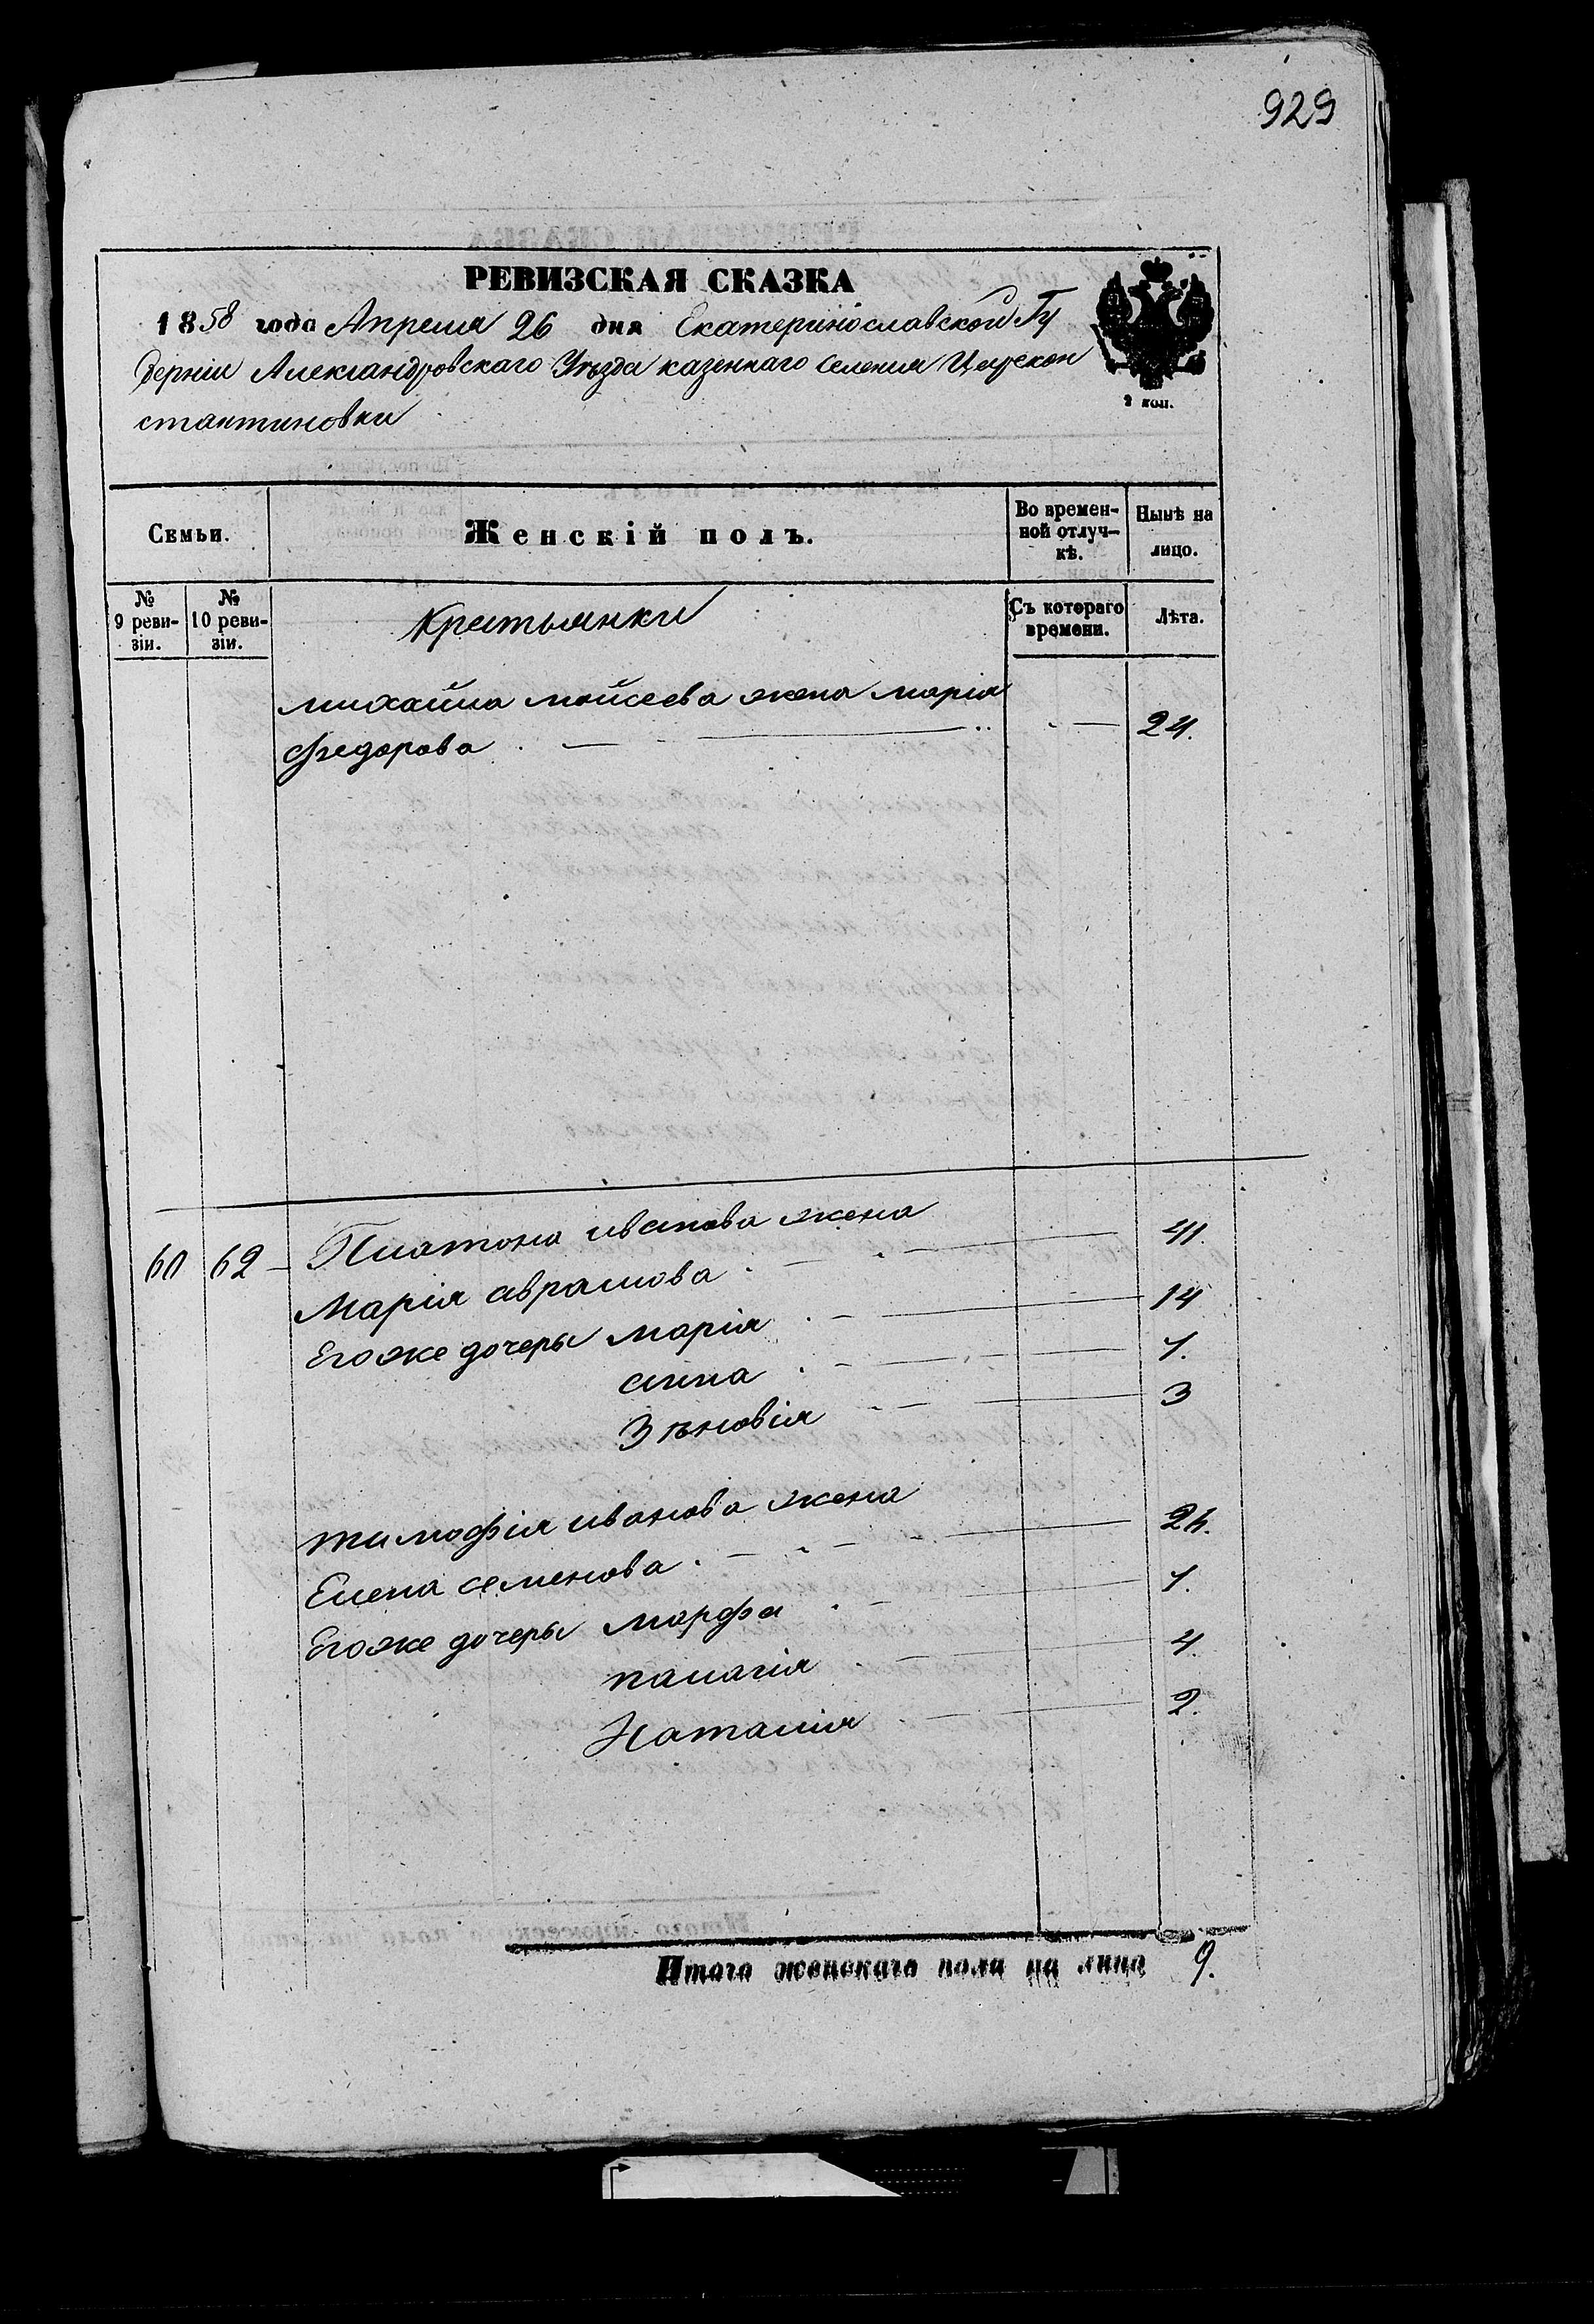 929
РЕВИЗСКАЯ СКАЗКА
1858 года Апреля 26 дня Екатеринославской Гу
берніи Александровскаго Уѣзда казеннаго селенія Царекон
стантиновки
2 коп.
Семьи.
Женскій полъ.
Во времен-
ной отлуч-
кѣ.
Нынѣ на
лицо.
№
9 реви-
зіи.
№
10 реви-
зіи.
Крестьянки
Съ котораго
времени.
Лѣта.
михайла мойсеева жена марія
федорова 24.
60 62 Платона иванова жена
Марія аврамова 41.
Егоже дочеры марія 14
анна
Зѣновія 3
тимофія иванова жена
Елена семенова
Егоже дочеры марфа
палагія 4.
Наталія 2.
Итого женскаго пола на лицо 9.